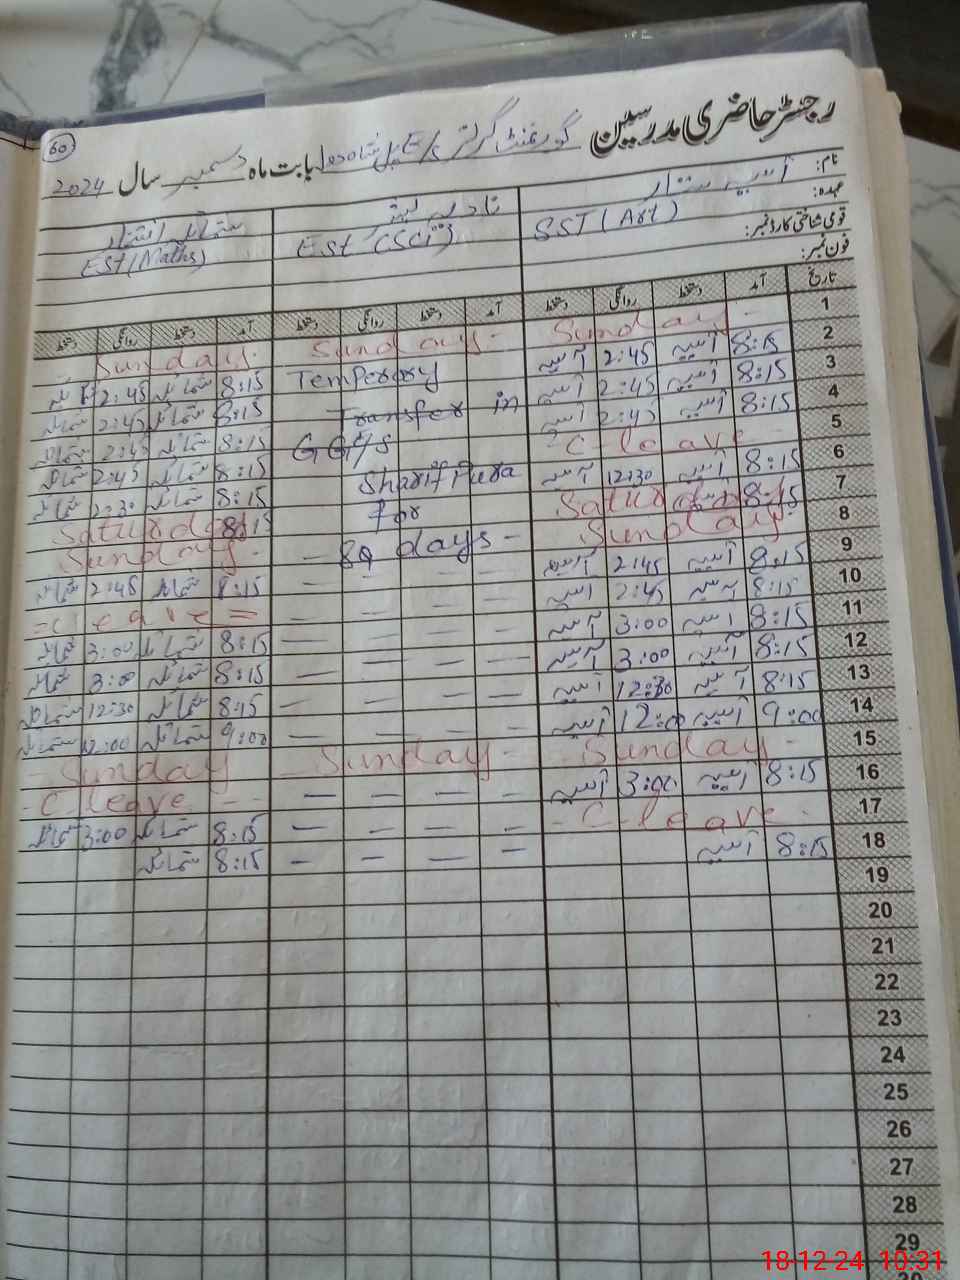 60
رجسٹر حاضری مدرسین گورنمنٹ گرلز E/S بابت ماہ دسمبر سال 2024
نام: آسیہ ستار
عہدہ: SST (Art) EST (Sci) EST (Maths)
قومی شناختی کارڈ نمبر:
فون نمبر:
تاریخ آمد دستخط روانگی دستخط آمد دستخط روانگی دستخط آمد دستخط روانگی دستخط
1 Sunday Sunday - Sunday
2 8:15 آسیہ 2:45 آسیہ Temperory 8:15 شمائلہ 2:45 شمائلہ
3 8:15 آسیہ 2:45 آسیہ Transfer in 8:15 شمائلہ 2:45 شمائلہ
4 8:15 آسیہ 2:45 آسیہ GGE/s 8:15 شمائلہ 2:45 شمائلہ
5 C leave Sharif Pura 8:15 شمائلہ 2:45 شمائلہ
6 8:15 آسیہ 12:30 آسیہ For 8:15 شمائلہ 12:30 شمائلہ
7 Saturday 8:15 Saturday 8:15
8 Sunday - 89 days - Sunday -
9 8:15 آسیہ 2:45 آسیہ 8:15 شمائلہ 2:45 شمائلہ
10 8:15 آسیہ 2:45 آسیہ = C leave =
11 8:15 آسیہ 3:00 آسیہ 8:15 شمائلہ 3:00 شمائلہ
12 8:15 آسیہ 3:00 آسیہ 8:15 شمائلہ 3:00 شمائلہ
13 8:15 آسیہ 12:30 آسیہ 8:15 شمائلہ 12:30 شمائلہ
14 9:00 آسیہ 12:00 آسیہ 9:00 شمائلہ 12:00 شمائلہ
15 - Sunday - - Sunday - - Sunday
16 8:15 آسیہ 3:00 آسیہ - C leave - -
17 - C leave - 8:15 شمائلہ 3:00 شمائلہ
18 8:15 آسیہ 8:15 شمائلہ
19
20
21
22
23
24
25
26
27
28
29
18-12-24 10:31